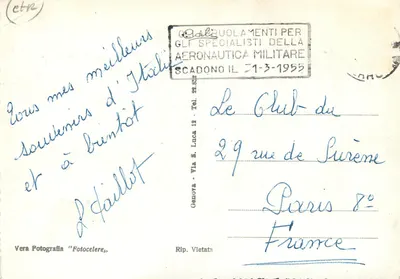 (et12)
GLI ARRUOLAMENTI PER
GLI SPECIALISTI DELLA
AERONAUTICA MILITARE
SCADONO IL 31-3-1955
Tous mes meilleurs
souvenirs d'Italie
et à bientôt
L Haillot
Le Club du
29 rue de Surène
Paris 8º
France
Genova - Via S. Luca 12 - Tel 22.
Vera Fotografia "Fotocelere„
Rip. Vietata